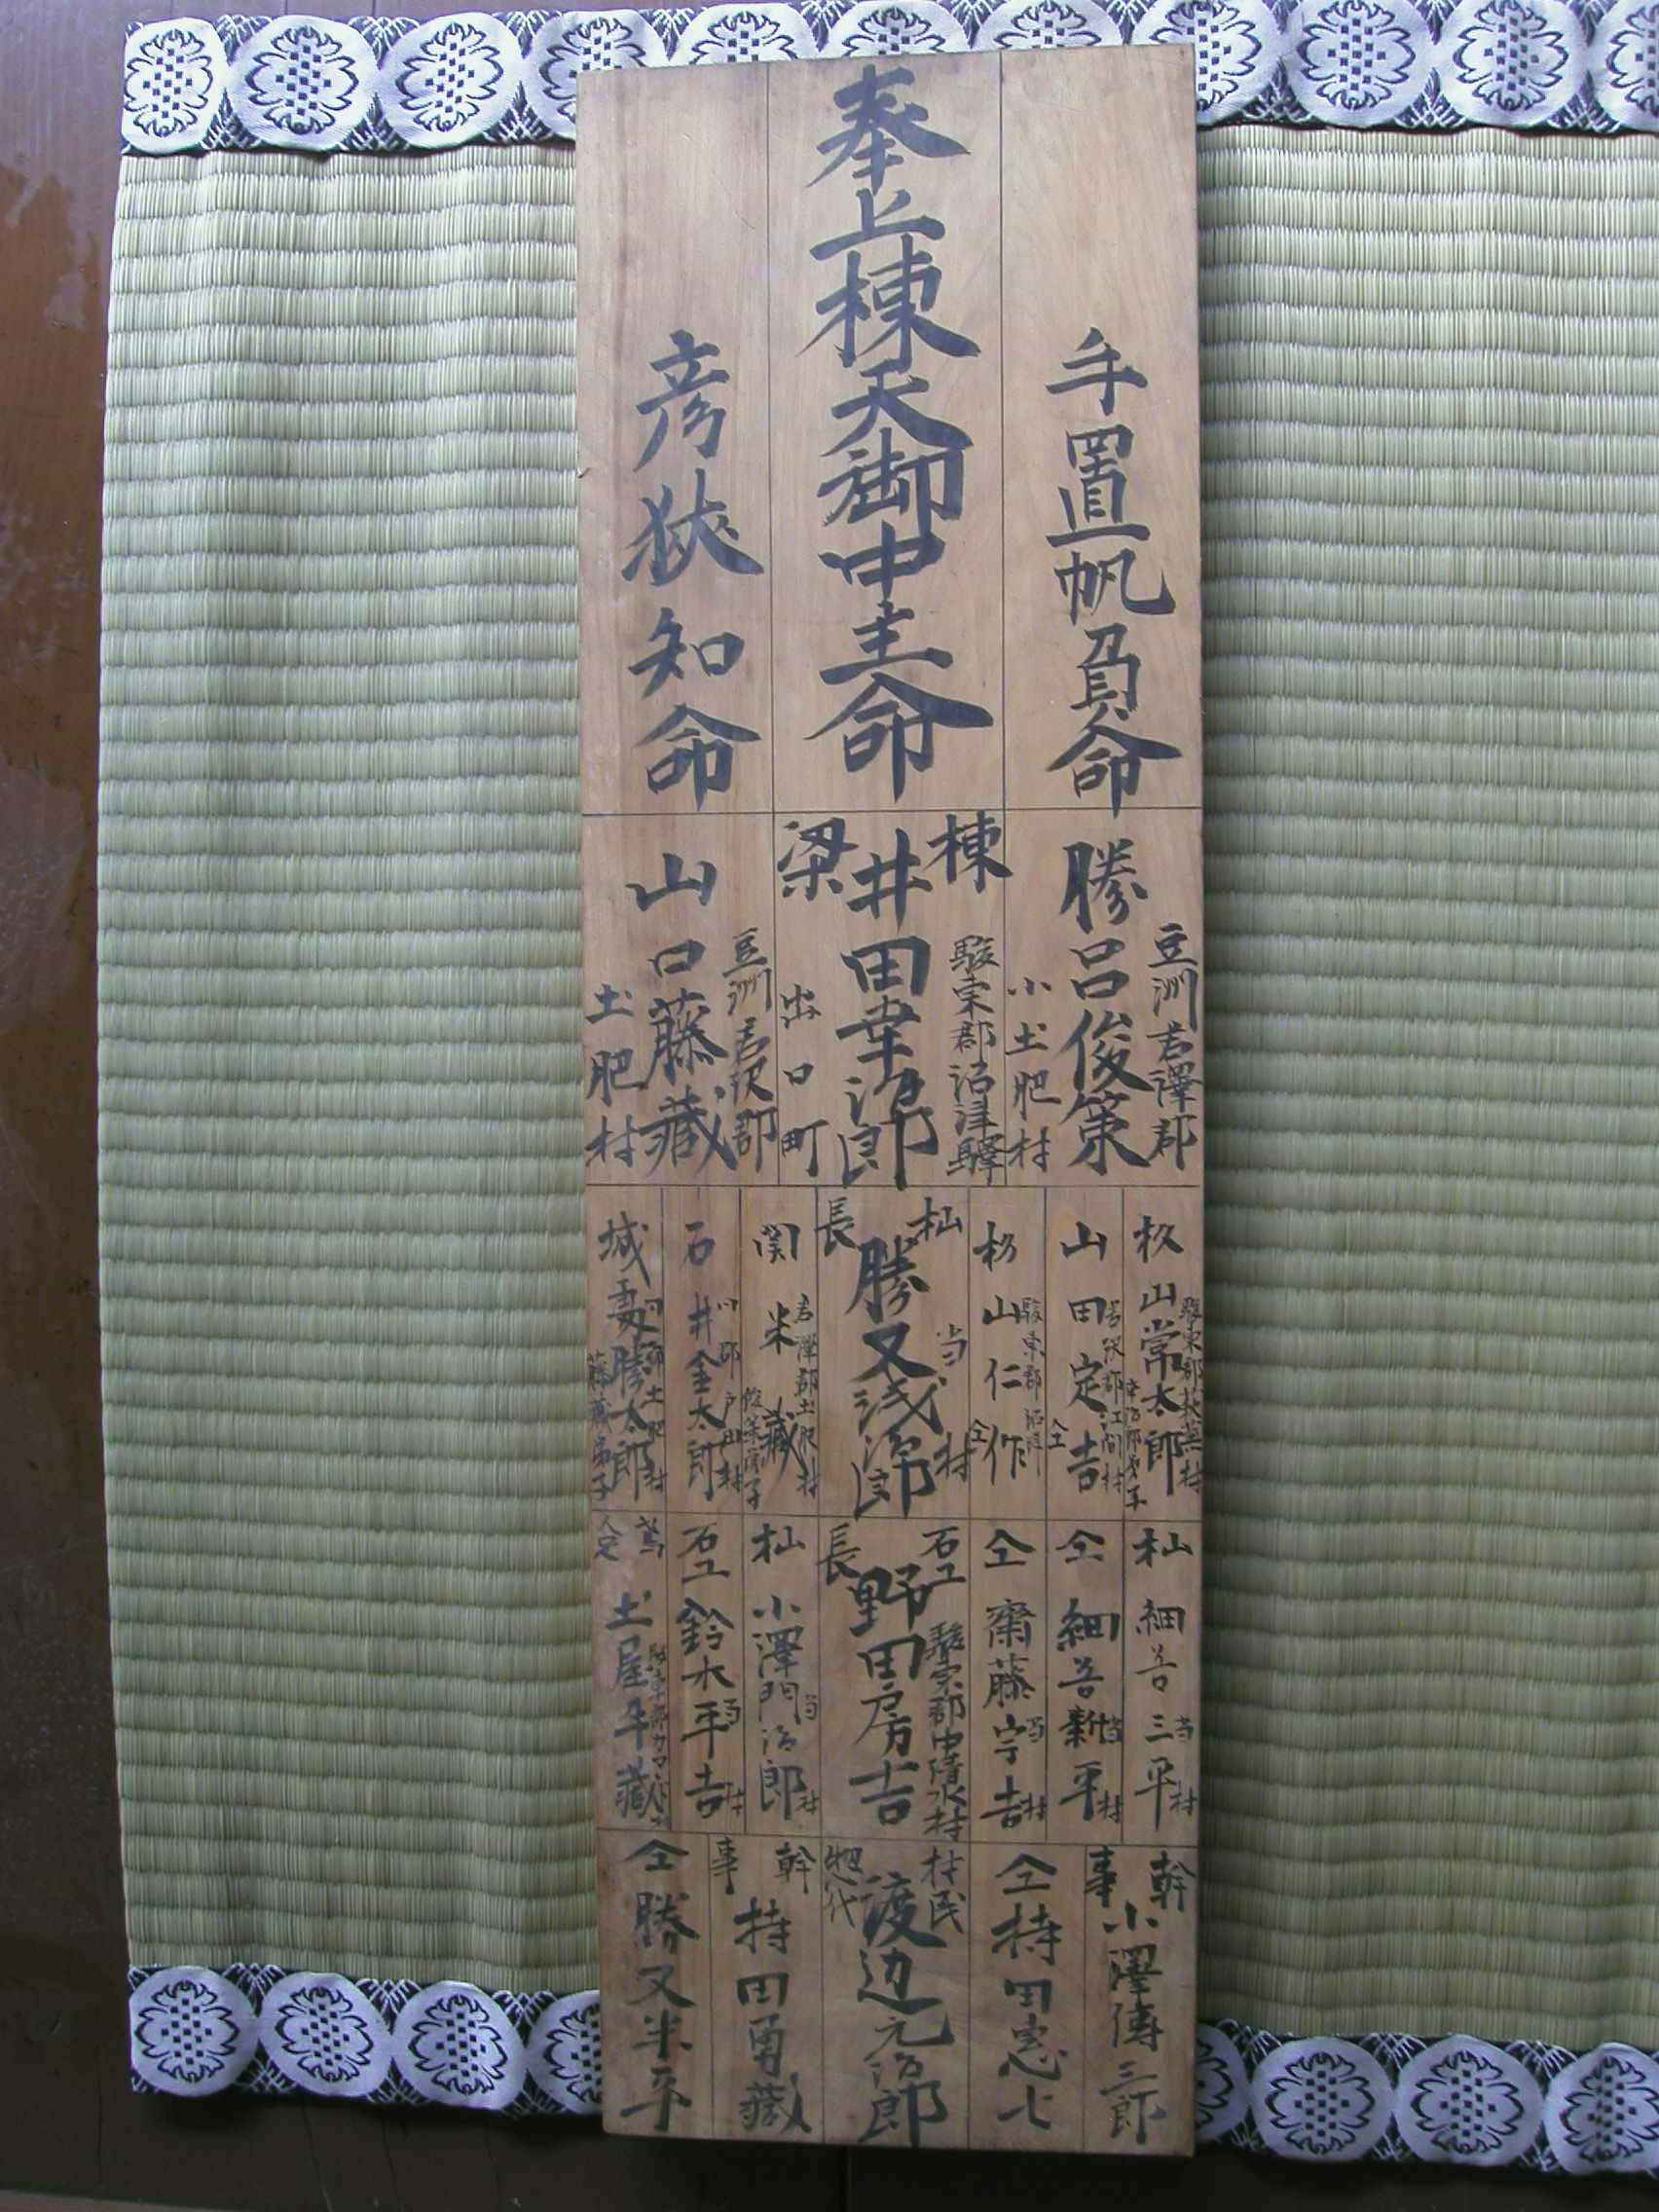 手置帆負命
奉上棟天御中主命
彦狭知命
豆洲君澤郡
勝呂俊策
小土肥村
棟梁
駿東郡沼津驛
井田幸治郎
出口町
豆洲君沢郡
山口藤藏
土肥村
杉山常太郎
山田定吉
仝
駿東郡沼津
杉山仁作
仝
杣長
当村
勝又浅治郎
君澤郡土肥村
関米藏
俊策弟子
石井金太郎
郡戸田村
郡土肥村
勝太郎
藤藏弟子
杣
細井三平
当村
仝
細井新平
当村
仝
齋藤宇吉
当村
石工長
駿東郡中清水村
野田房吉
杣
小澤門治郎
当村
石工
鈴木平吉
当村
鳶人足
土屋牛藏
幹事
小澤傳三郎
仝
持田憲七
村民惣代
渡辺元治郎
幹事
持田勇藏
仝
勝又米平